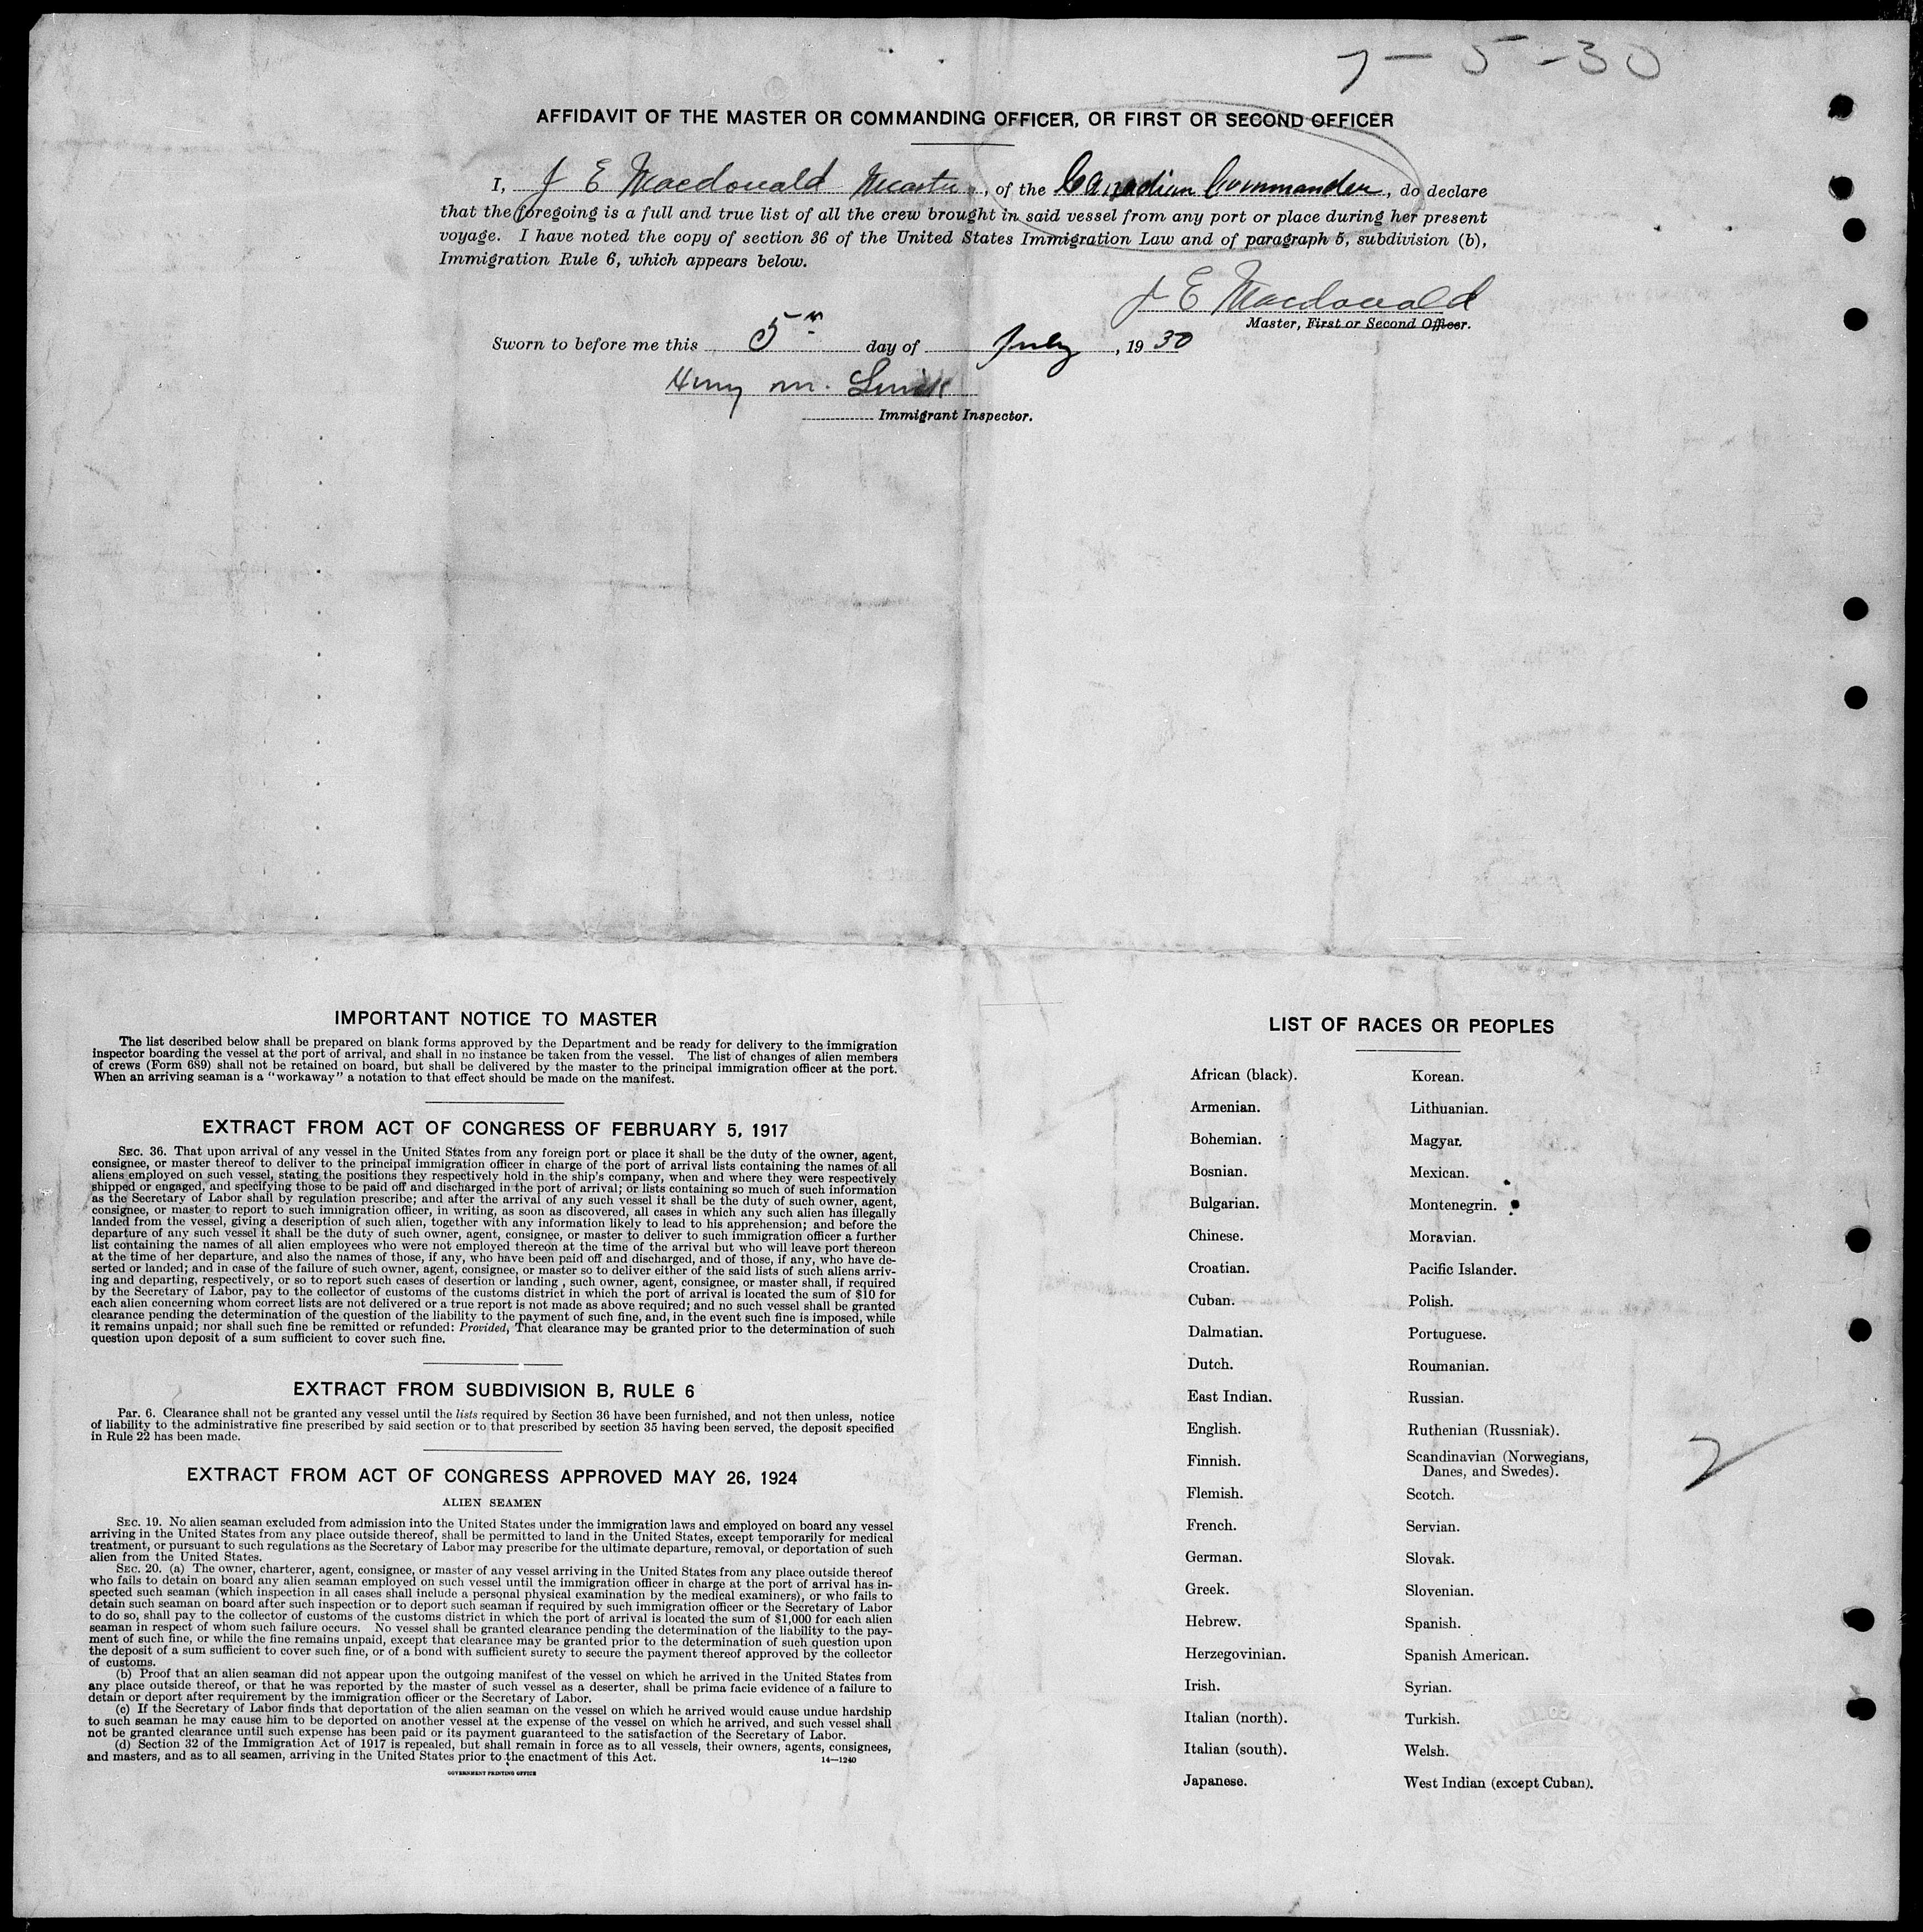 7-5-30
AFFIDAVIT OF THE MASTER OR COMMANDING OFFICER, OR FIRST OR SECOND OFFICER
I, J E Macdonald Master, of the Canadian Commander, do declare
that the foregoing is a full and true list of all the crew brought in said vessel from any port or place during her present
voyage. I have noted the copy of section 36 of the United States Immigration Law and of paragraph 5, subdivision (b),
Immigration Rule 6, which appears below.
J E Macdonald
Master, First or Second Officer.
Sworn to before me this 5th day of July, 1930
Henry M.
Immigrant Inspector.
IMPORTANT NOTICE TO MASTER
The list described below shall be prepared on blank forms approved by the Department and be ready for delivery to the immigration
inspector boarding the vessel at the port of arrival, and shall in no instance be taken from the vessel. The list of changes of alien members
of crews (Form 689) shall not be retained on board, but shall be delivered by the master to the principal immigration officer at the port.
When an arriving seaman is a "workaway" a notation to that effect should be made on the manifest.
EXTRACT FROM ACT OF CONGRESS OF FEBRUARY 5, 1917
SEC. 36. That upon arrival of any vessel in the United States from any foreign port or place it shall be the duty of the owner, agent,
consignee, or master thereof to deliver to the principal immigration officer in charge of the port of arrival lists containing the names of all
aliens employed on such vessel, stating the positions they respectively hold in the ship's company, when and where they were respectively
shipped or engaged, and specifying those to be paid off and discharged in the port of arrival; or lists containing so much of such information
as the Secretary of Labor shall by regulation prescribe; and after the arrival of any such vessel it shall be the duty of such owner, agent,
consignee, or master to report to such immigration officer, in writing, as soon as discovered, all cases in which any such alien has illegally
landed from the vessel, giving a description of such alien, together with any information likely to lead to his apprehension; and before the
departure of any such vessel it shall be the duty of such owner, agent, consignee, or master to deliver to such immigration officer a further
list containing the names of all alien employees who were not employed thereon at the time of the arrival but who will leave port thereon
at the time of her departure, and also the names of those, if any, who have been paid off and discharged, and of those, if any, who have de-
serted or landed; and in case of the failure of such owner, agent, consignee, or master so to deliver either of the said lists of such aliens arriv-
ing and departing, respectively, or so to report such cases of desertion or landing , such owner, agent, consignee, or master shall, if required
by the Secretary of Labor, pay to the collector of customs of the customs district in which the port of arrival is located the sum of $10 for
each alien concerning whom correct lists are not delivered or a true report is not made as above required; and no such vessel shall be granted
clearance pending the determination of the question of the liability to the payment of such fine, and, in the event such fine is imposed, while
it remains unpaid; nor shall such fine be remitted or refunded: Provided, That clearance may be granted prior to the determination of such
question upon deposit of a sum sufficient to cover such fine.
EXTRACT FROM SUBDIVISION B, RULE 6
Par. 6. Clearance shall not be granted any vessel until the lists required by Section 36 have been furnished, and not then unless, notice
of liability to the administrative fine prescribed by said section or to that prescribed by section 35 having been served, the deposit specified
in Rule 22 has been made.
EXTRACT FROM ACT OF CONGRESS APPROVED MAY 26, 1924
ALIEN SEAMEN
SEC. 19. No alien seaman excluded from admission into the United States under the immigration laws and employed on board any vessel
arriving in the United States from any place outside thereof, shall be permitted to land in the United States, except temporarily for medical
treatment, or pursuant to such regulations as the Secretary of Labor may prescribe for the ultimate departure, removal, or deportation of such
alien from the United States.
SEC. 20. (a) The owner, charterer, agent, consignee, or master of any vessel arriving in the United States from any place outside thereof
who fails to detain on board any alien seaman employed on such vessel until the immigration officer in charge at the port of arrival has in-
spected such seaman (which inspection in all cases shall include a personal physical examination by the medical examiners), or who fails to
detain such seaman on board after such inspection or to deport such seaman if required by such immigration officer or the Secretary of Labor
to do so, shall pay to the collector of customs of the customs district in which the port of arrival is located the sum of $1,000 for each alien
seaman in respect of whom such failure occurs. No vessel shall be granted clearance pending the determination of the liability to the pay-
ment of such fine, or while the fine remains unpaid, except that clearance may be granted prior to the determination of such question upon
the deposit of a sum sufficient to cover such fine, or of a bond with sufficient surety to secure the payment thereof approved by the collector
of customs.
(b) Proof that an alien seaman did not appear upon the outgoing manifest of the vessel on which he arrived in the United States from
any place outside thereof, or that he was reported by the master of such vessel as a deserter, shall be prima facie evidence of a failure to
detain or deport after requirement by the immigration officer or the Secretary of Labor.
(c) If the Secretary of Labor finds that deportation of the alien seaman on the vessel on which he arrived would cause undue hardship
to such seaman he may cause him to be deported on another vessel at the expense of the vessel on which he arrived, and such vessel shall
not be granted clearance until such expense has been paid or its payment guaranteed to the satisfaction of the Secretary of Labor.
(d) Section 32 of the Immigration Act of 1917 is repealed, but shall remain in force as to all vessels, their owners, agents, consignees,
and masters, and as to all seamen, arriving in the United States prior to the enactment of this Act.
14—1240
GOVERNMENT PRINTING OFFICE
LIST OF RACES OR PEOPLES
African (black).
Armenian.
Bohemian.
Bosnian.
Bulgarian.
Chinese.
Croatian.
Cuban.
Dalmatian.
Dutch.
East Indian.
English.
Finnish.
Flemish.
French.
German.
Greek.
Hebrew.
Herzegovinian.
Irish.
Italian (north).
Italian (south).
Japanese.
Korean.
Lithuanian.
Magyar.
Mexican.
Montenegrin.
Moravian.
Pacific Islander.
Polish.
Portuguese.
Roumanian.
Russian.
Ruthenian (Russniak).
Scandinavian (Norwegians,
Danes, and Swedes).
Scotch.
Servian.
Slovak.
Slovenian.
Spanish.
Spanish American.
Syrian.
Turkish.
Welsh.
West Indian (except Cuban).
2